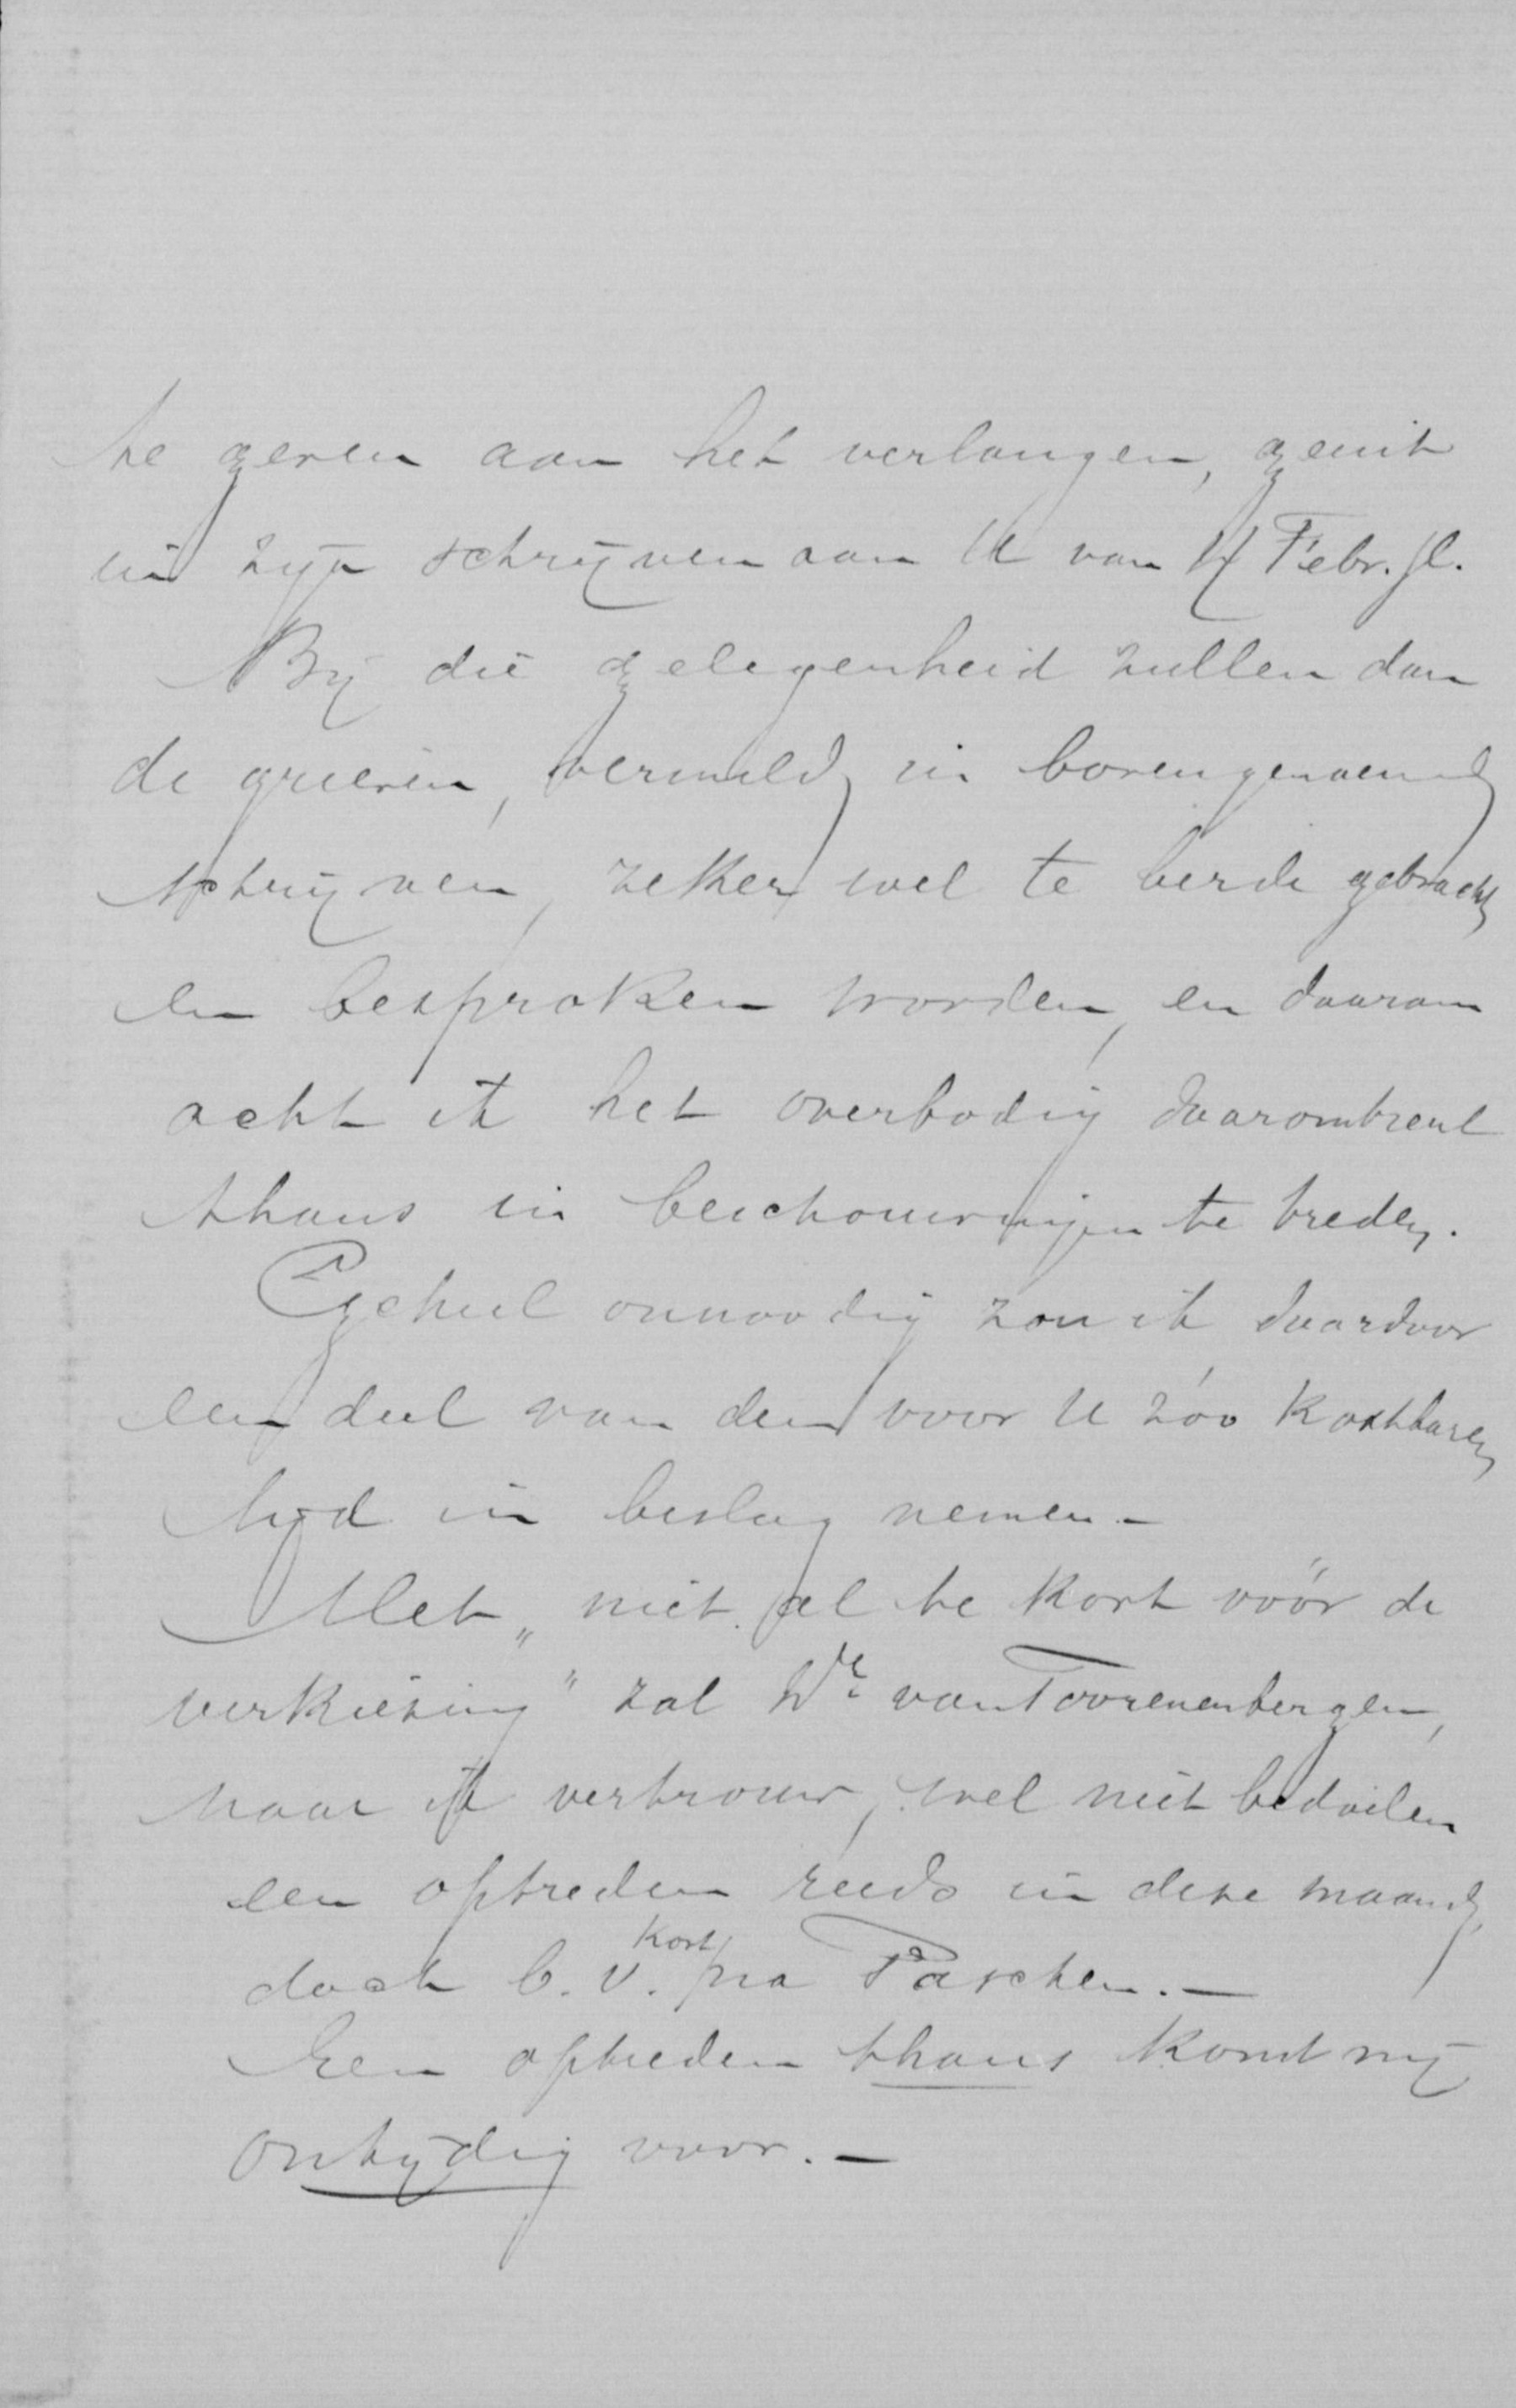 te geven aan het verlangen, geuit
in zijn schrijven aan U van 4 Febr. jl.
Bij die gelegenheid zullen dan
de grieven, vermeld in bovengenoemd
schrijven, zeker wel te berde gebracht
en besproken worden, en daarom
acht ik het overbodig daaromtrent
thans in beschouwingen te treden.
Geheel onnoodig zou ik daardoor
een deel van den voor U zóo kostbaren
tijd in beslag nemen. -
Met „niet al te kort vóór de
verkiezing" zal Dr. van Toorenenbergen,
naar ik vertrouw, wel niet bedoelen
een optreden reeds in deze maand,
doch b.v. kort na Paschen. -
Een optreden thans komt mij
ontijdig voor. -